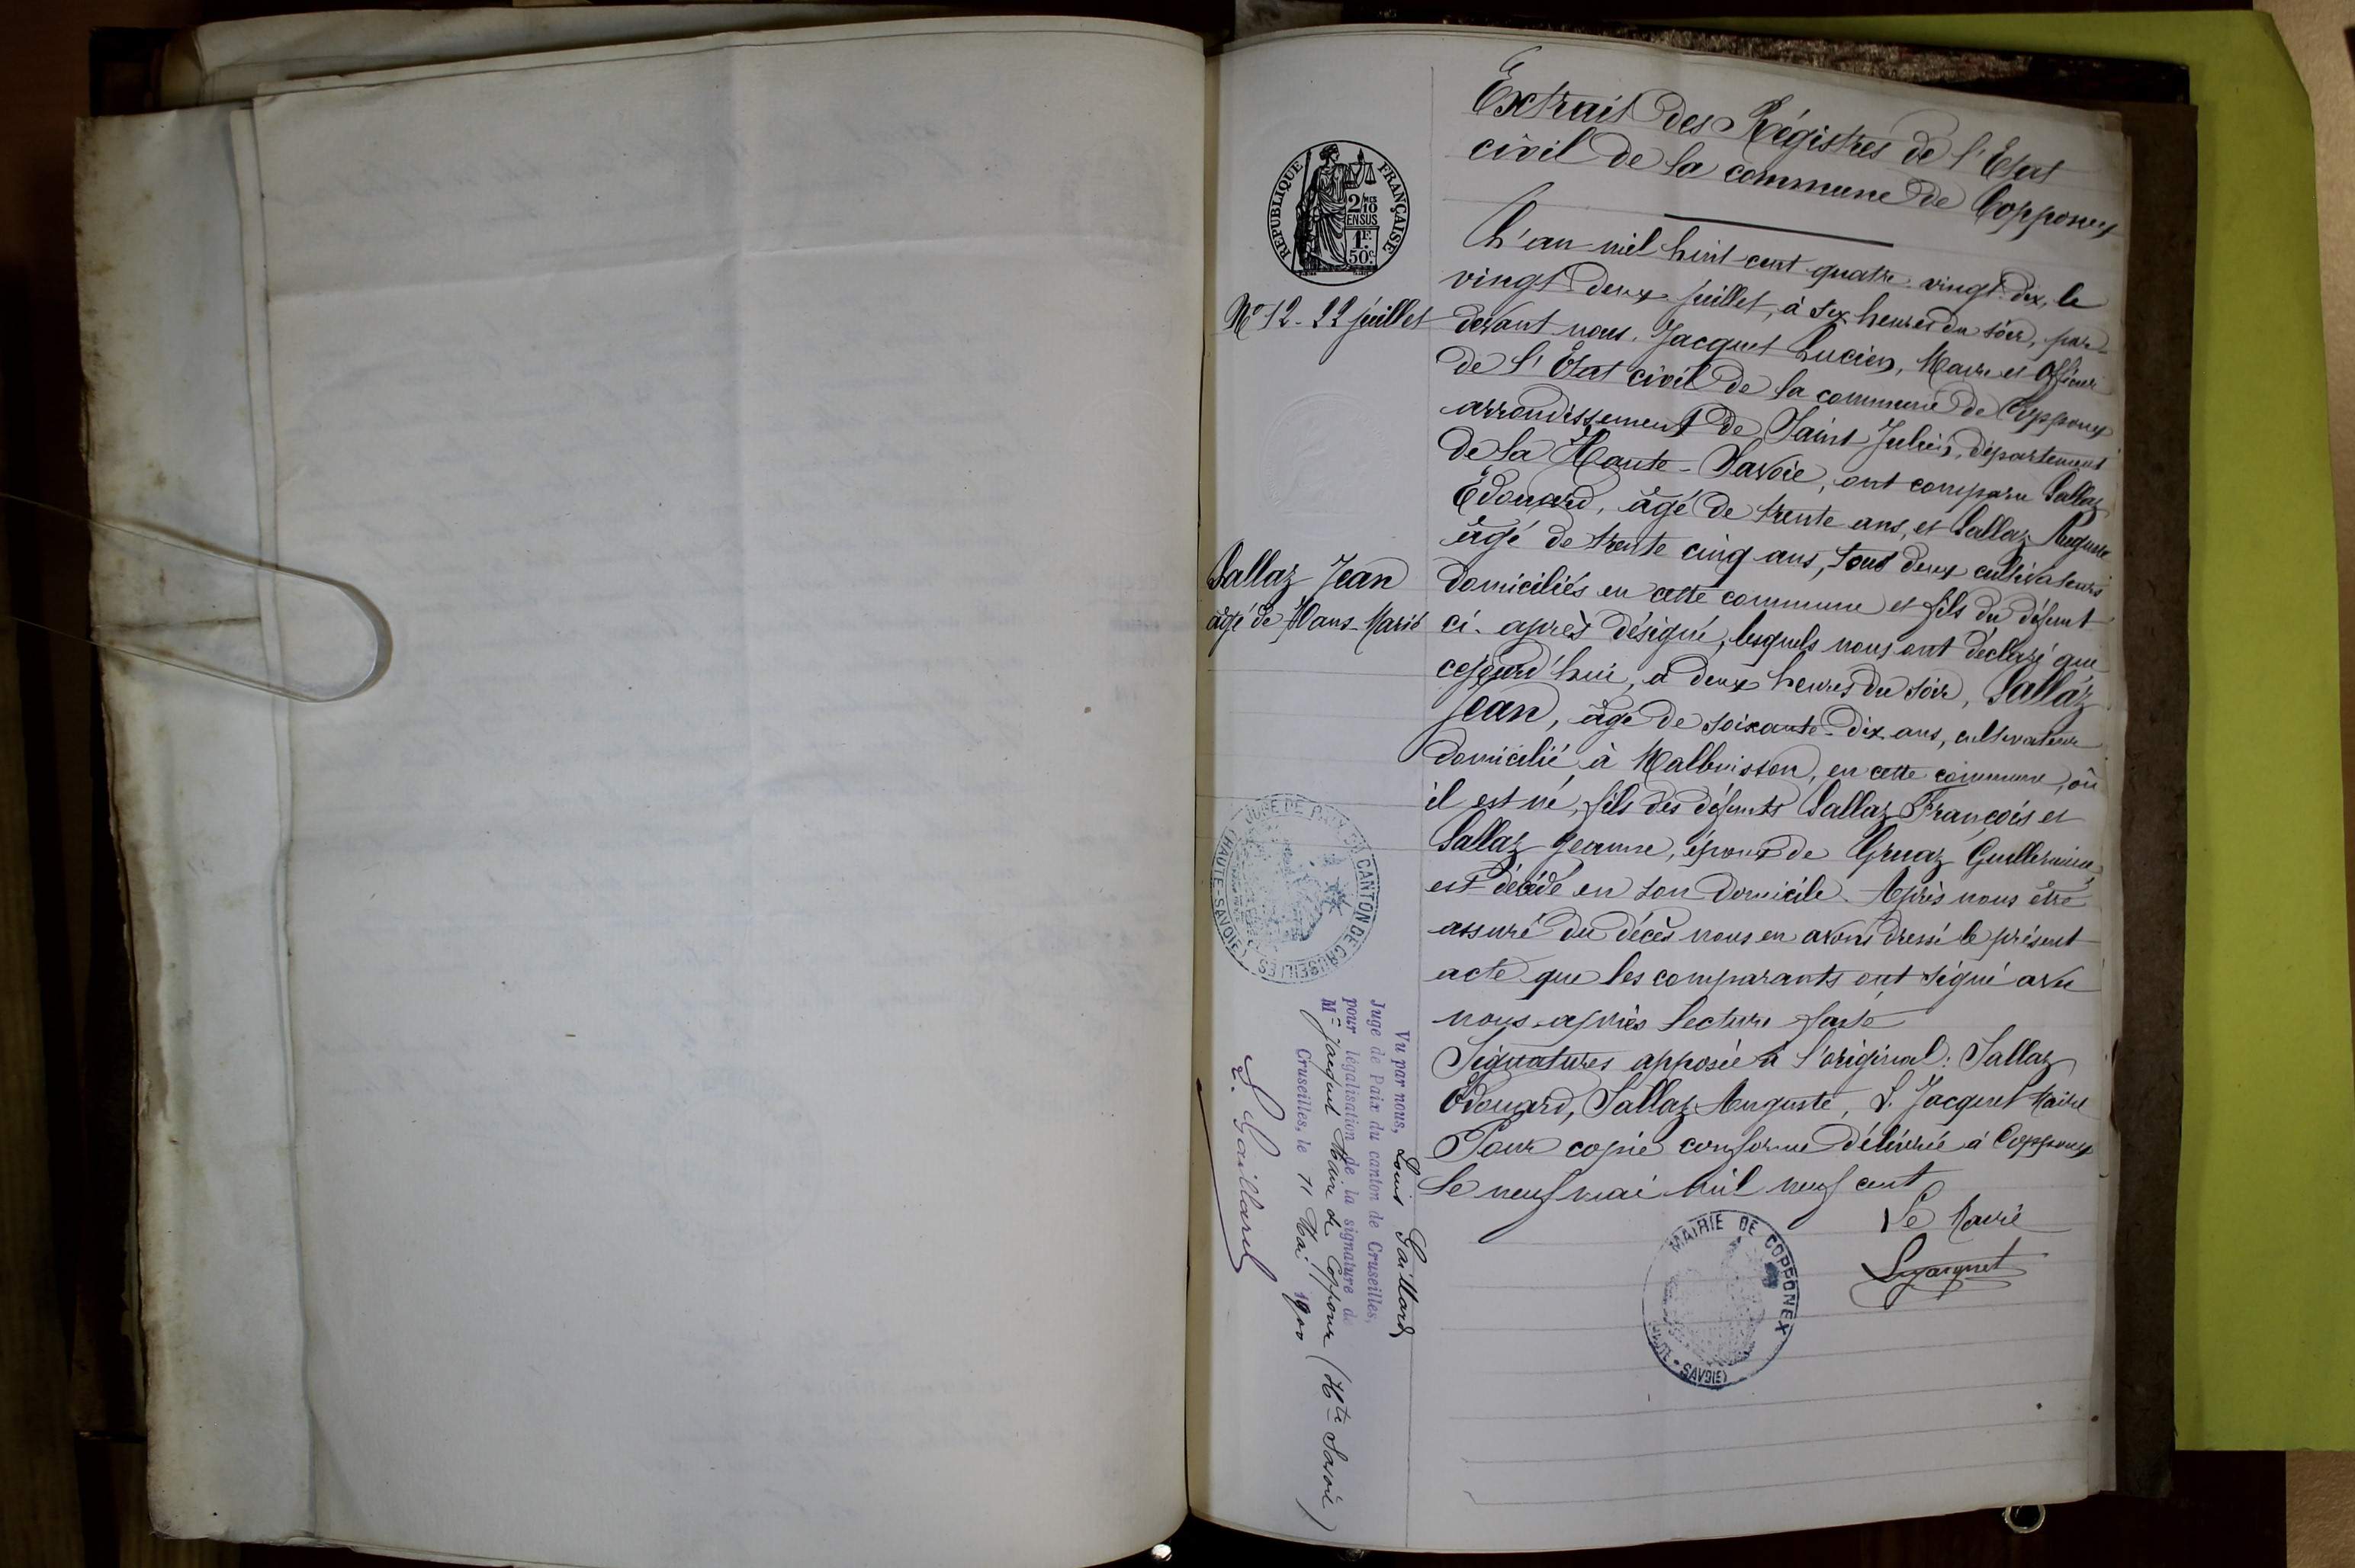 Extrait des Régistres de l'Etat
civil de la commune de Copponex
RÉPUBLIQUE FRANÇAISE
2/10 MES
EN SUS
1F.
50c.
L'an mil huit cent quatre-vingt-dix, le
vingt-deux juillet, à six heures du soir, par-
N° 12 - 22 juillet
devant nous, Jacquet Lucien, Maire et Officier
de l'Etat civil de la commune de Copponex
arrondissement de Saint-Julien, département
de la Haute-Savoie, ont comparu Sallaz
Edouard, âgé de trente ans, et Sallaz Auguste
âgé de trente cinq ans, tous deux cultivateurs
Sallaz Jean
âgé de 70 ans - Marié
domiciliés en cette commune et fils du défunt
ci-après désigné, lesquels nous ont déclaré que
cejourd'hui, à deux heures du soir, Sallaz
Jean, âgé de soixante-dix ans, cultivateur
domicilié à Malbuisson, en cette commune, où
il est né, fils des défunts Sallaz François et
Sallaz Jeanne, époux de Gruaz Guillermine
est décédé en son domicile. Après nous être
assuré du décès nous en avons dressé le présent
acte que les comparants ont signé avec
nous après lecture faite
Signatures apposée à l'original: Sallaz
Edouard, Sallaz Auguste, L. Jacquet Maire
Pour copie conforme délivrée à Copponex
le neuf mai mil neuf cent
Le Maire
L Jacquet
MAIRIE DE COPPONEX
SAVOIE)
JUGE DE PAIX DU CANTON DE CRUSEILLES
(HAUTE-SAVOIE)
Vu par nous, Louis Gaillard
Juge de Paix du canton de Cruseilles,
pour légalisation de la signature de
M= Jacquet Maire de Copponex (Hte Savoie)
Cruseilles, le 11 Mai 1900
L. Gaillard